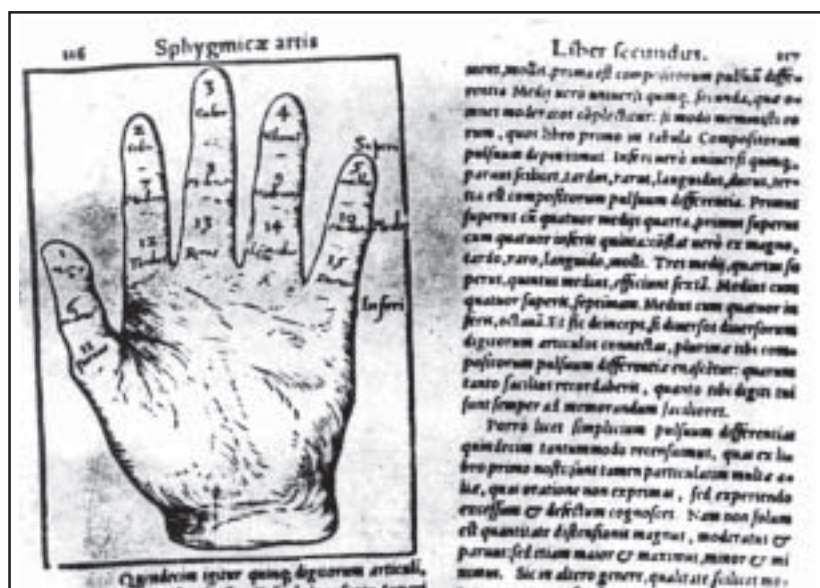 116 Sphygmicæ artis
3
2 4
5
8
7 9
10
13
12 14
15
1
6
11
Inferi
Quindecim igitur quinq; digitorum articuli,
Liber ſecundus. 117
prima eſt compoſitorum pulſuũ diffe-
rentia Medij uero uniuerſi quinq; ſecunda, quæ o-
mnes moderatos cõplectitur: ſi modo meminiſti eo
rum, quos libro primo in tabula Compoſitorum
pulſuum depinximus. Inferi uerò uniuerſi quinq;,
paruus ſcilicet, tardus, rarus, languidus, durus, ter-
tia eſt compoſitorum pulſuum differentia. Primus
ſuperus cũ quatuor medijs quarta, primus ſuperus
cum quatuor inferis quinta: cõſtat uerò ex magno,
tardo, raro, languido, molli. Tres medij, quartus ſu
perus, quintus medius, efficiunt ſextã. Medius cum
quatuor ſuperis, ſeptimam. Medius cum quatuor in
feris, octauã. Et ſic deinceps, ſi diuerſos diuerſorum
digitorum articulos connectas, plurimæ tibi com-
poſitorum pulſuum differentiæ enaſcẽtur: quarum
tanto facilius recordaberis, quanto tibi digiti tui
ſunt ſemper ad memorandum faciliores.
Porrò licet ſimplicium pulſuum differentias
quindecim tantummodo recenſuimus, quas ex li-
bro primo noſti: ſunt tamen particulatim multæ a-
liæ, quas oratione non exprimas, ſed experiendo
exceſſum & defectum cognoſces. Nam non ſolum
eſt quantitate diſtenſionis magnus, moderatus &
paruus: ſed etiam maior & maximus, minor & mi
nimus. Sic in altero genere, qualitate ſcilicet mo-